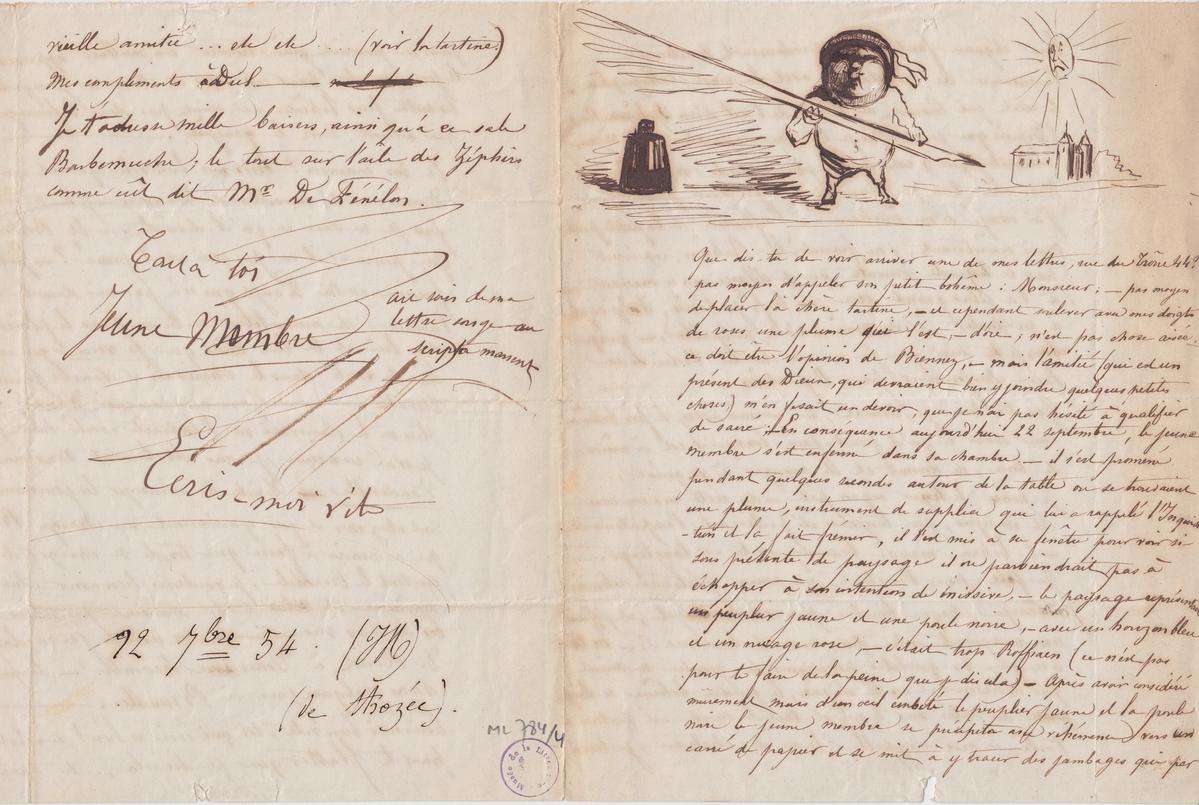 vieille amitié ... etc etc ... (voir la tartine)
Mes compliments à Dul
Je t'adresse mille baisers, ainsi qu'à ce sale
Barbemuche; le tout sur l'aile des Zéphirs
comme eût dit Mr De Fénélon.
Tout à toi
Jeune Membre
aie soin de ma
lettre songe au
scripta manent
Écris-moi vite
22 7bre 54. (JH)
(de Thozée).
ML 784/4
Musée de la Littérature
Que dis-tu de voir arriver une de mes lettres, rue du Trône 44?
pas moyen d'appeler son petit bohême : Monsieur; — pas moyen
de placer la chère tartine, — et cependant enlever avec mes doigts
de roses une plume qui l'est, — d'oie; n'est pas chose aisée
ce doit être l'opinion de Bienney, — mais l'amitié (qui est un
présent des Dieux, qui devraient bien y joindre quelques petites
choses) m'en fesait un devoir, que je n'ai pas hésité à qualifier
de sacré; — En conséquence aujourd'hui 22 septembre, le jeune
membre s'est enfermé dans sa chambre — il s'est promené
pendant quelques secondes autour de la table où se trouvaient
une plume, instrument de supplice qui lui a rappelé l'Inquisi
-tion et l'a fait frémir, il s'est mis à sa fenêtre pour voir si
sous prétexte de paysage il ne parviendrait pas à
échapper à son intention de missive, — le paysage représentait
un peuplier jaune et une poule noire, — avec un horizon bleu
et un nuage rose, — c'était trop Roffiaen (ce n'est pas
pour te faire de la peine que je dis cela) — Après avoir considéré
mûrement mais d'un oeil embêté le peuplier jaune et la poule
noire le jeune membre se précipita avec véhémence vers un
carré de papier et se mit à y tracer des jambages qui par